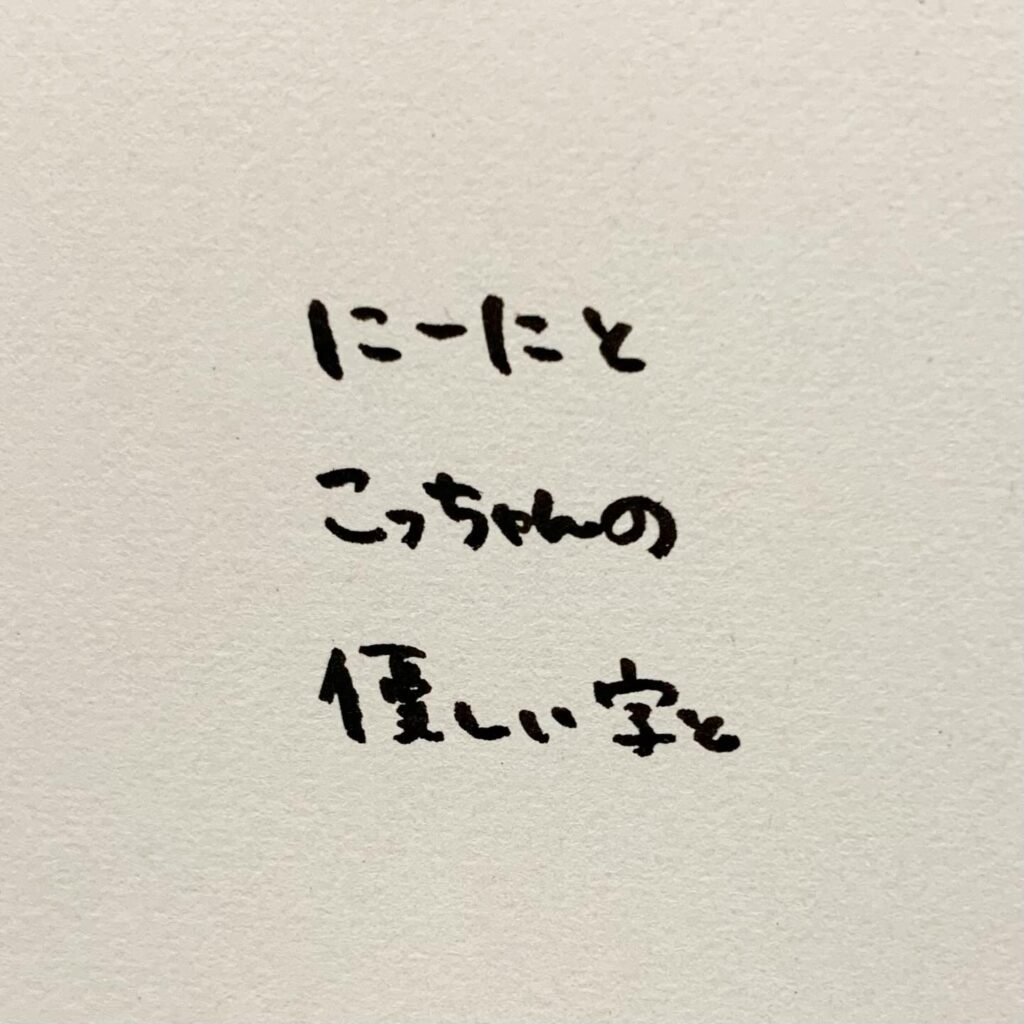 にーにと
こっちゃんの
優しい字と